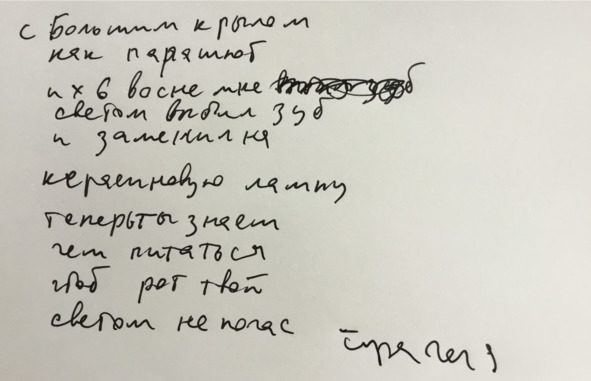 с Большим крылом
как парашют
их 6 восне мне
светом выбил зуб
и заменил на
керасиновую лампу
теперь ты знаеш
чем питаться
чтоб рот твой
светом не погас